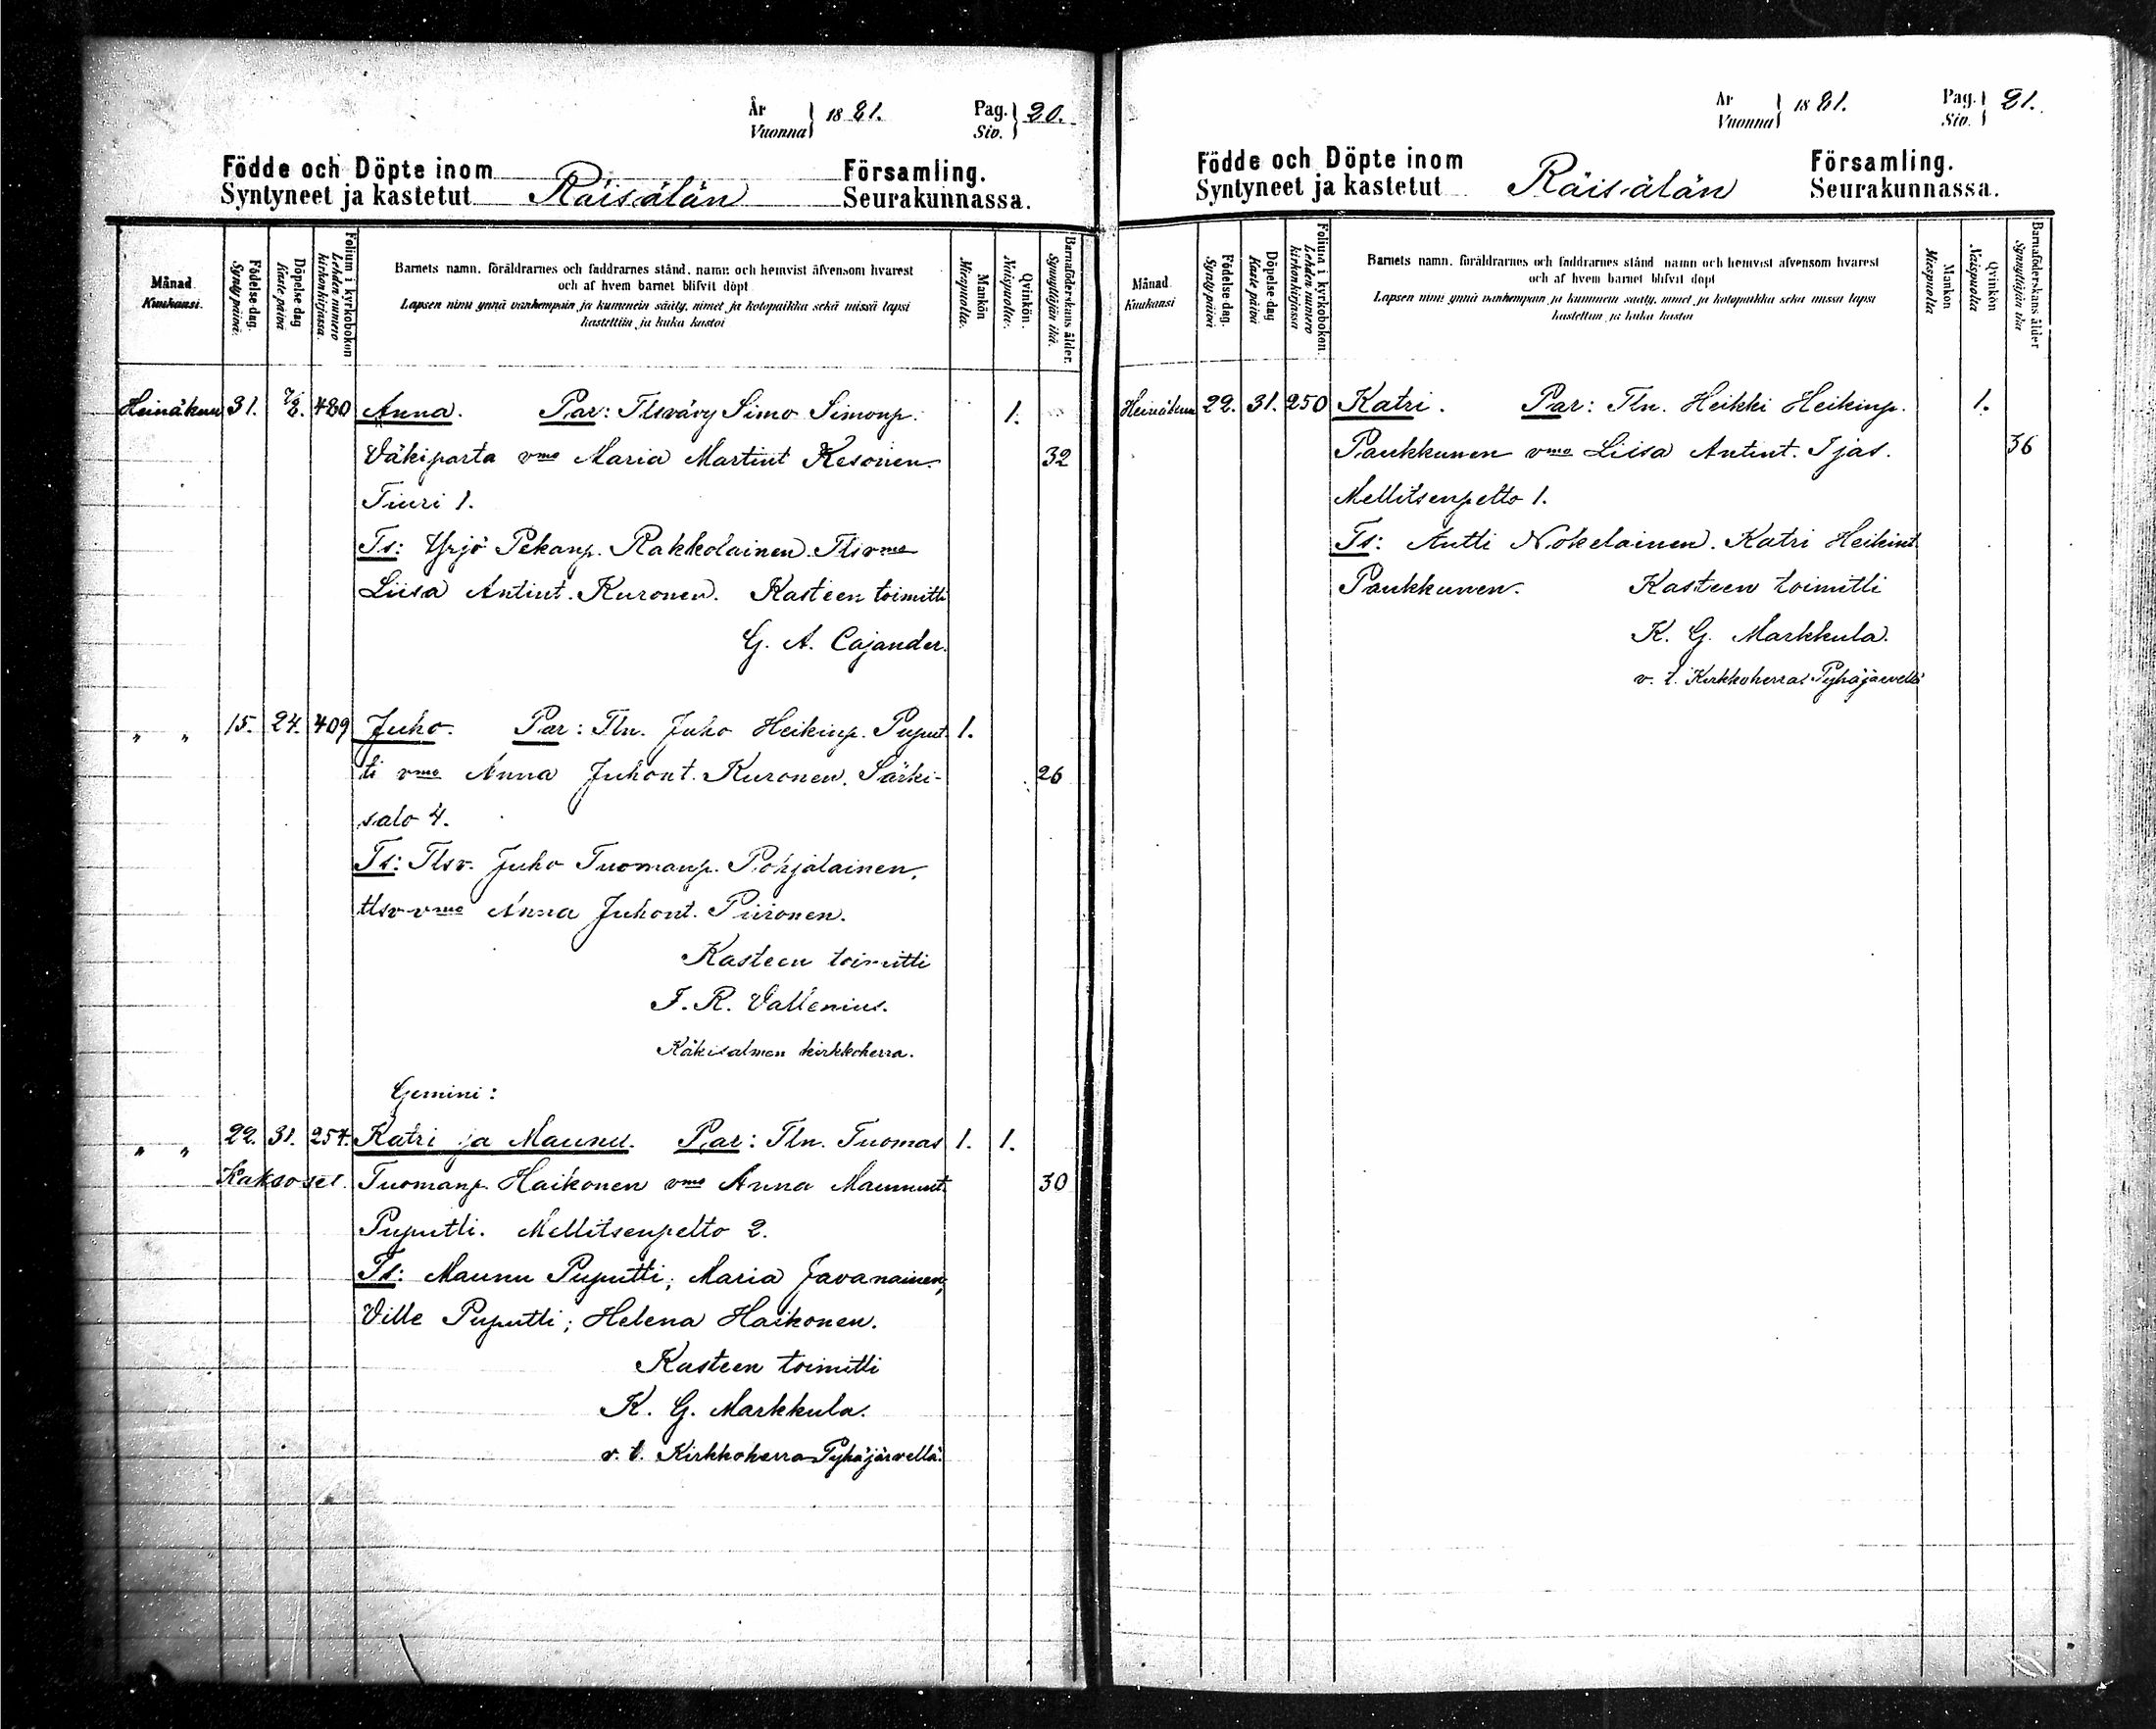 År
Vuonna } 1881. Pag.
Siv. } 20.
Födde och Döpte inom Församling.
Syntyneet ja kastetut Räisälän Seurakunnassa.
Månad.
Kuukausi.
Födelse-dag.
Syntypäivä.
Döpelse-dag
Kaste päivä
Folium i kyrkoboken
Lehden numero
kirkonkirjassa.
Barnets namn, föräldrarnes och faddrarnes stånd, namn och hemvist äfvensom hvarest
och af hvem barnet blifvit döpt
Lapsen nimi ynnä vanhempain ja kummein sääty, nimet ja kotopaikka sekä missä lapsi
kastettiin ja kuka kastoi
Mankön
Miespuolia.
Qvinkön.
Naispuolia.
Barnaföderskans ålder.
Synnyttäjän ikä.
Heinäkuu 31. 7/8. 480 Anna. Par: Tlsvävy Simo Simonp. 1.
Väkiparta vmo Maria Martint Kesonen. 32
Tiuri 1.
Ts: Yrjö Pekanp. Rakkolainen. Tlsvmo
Liisa Antint. Kuronen. Kasteen toimitti
G. A. Cajander.
" " 15. 24. 409 Juho. Par: Tln. Juho Heikinp. Puput- 1.
ti vmo Anna Juhont. Kuronen. Särki- 26
salo 4.
Ts: Tlsv. Juho Tuomanp. Pohjalainen,
tlsv vmo Anna Juhont. Piironen.
Kasteen toimitti
J. R. Vallenius.
Käkisalmen kirkkoherra.
Gemini:
" " 22. 31. 254. Katri ja Maunu. Par: Tln. Tuomas 1. 1.
Kaksoset. Tuomanp. Haikonen vmo Anna Maununt. 30
Puputti. Mellitsenpelto 2.
Ts: Maunu Puputti; Maria Javanainen;
Ville Puputti; Helena Haikonen.
Kasteen toimitti
K. G. Markkula.
v. t. Kirkkoherra Pyhäjärvellä.
År
Vuonna } 1881. Pag.
Siv. } 21.
Födde och Döpte inom Församling.
Syntyneet ja kastetut Räisälän Seurakunnassa.
Månad
Kuukausi
Födelse-dag.
Syntypäivä
Döpelse-dag
Kaste päivä
Folium i kyrkoboken.
Lehden numero
kirkonkirjassa
Barnets namn, föräldrarnes och faddrarnes stånd namn och hemvist äfvensom hvarest
och af hvem barnet blifvit döpt
Lapsen nimi ynnä vanhempain ja kummein sääty, nimet ja kotopaikka sekä missä lapsi
kastettiin ja kuka kastoi
Mankön
Miespuolia
Qvinkön
Naispuolia
Barnaföderskans ålder
Synnyttäjän ikä
Heinäkuu 22. 31. 250 Katri. Par: Tln. Heikki Heikinp. 1.
Paukkunen vmo Liisa Antint. Ijäs. 36
Mellitsenpelto 1.
Ts: Antti Nokelainen. Katri Heikint.
Paukkunen. Kasteen toimitti
K. G. Markkula.
v. t. Kirkkoherra Pyhäjärvellä